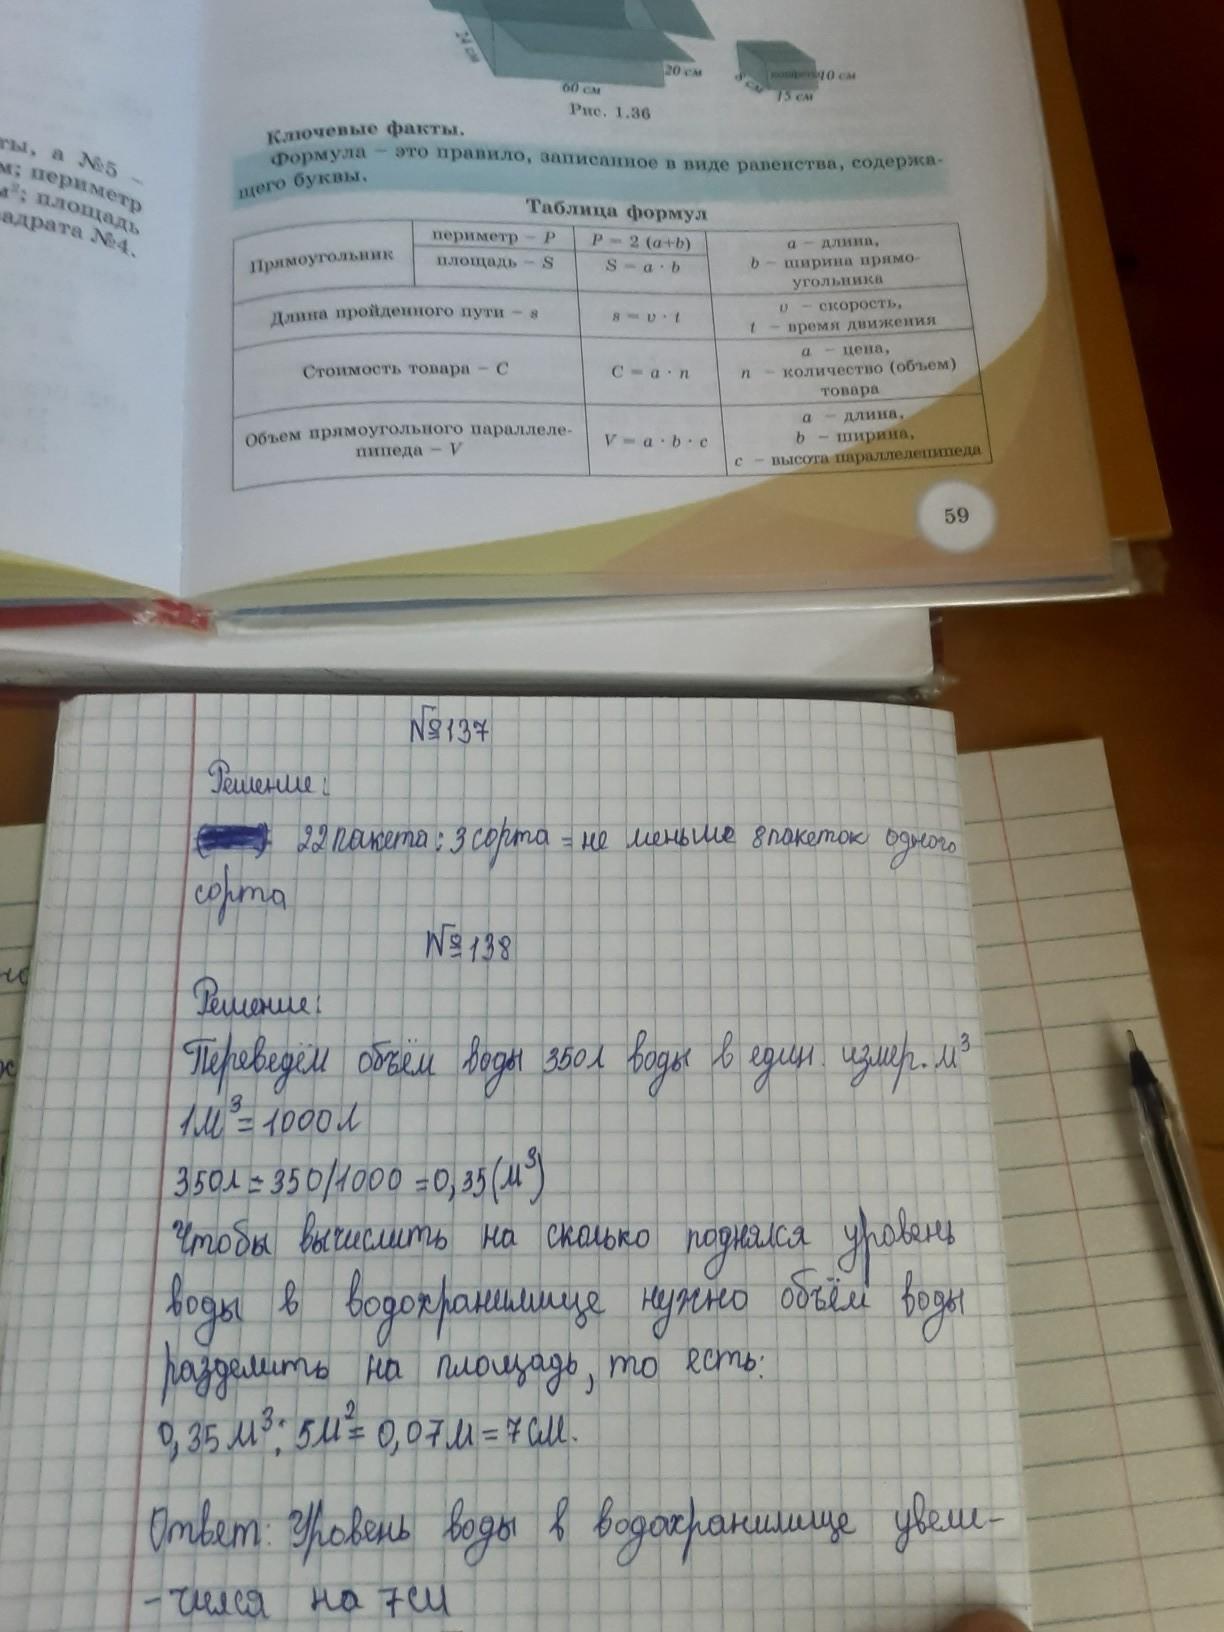 24 см
60 см
20 см
10 см
15 см
Рис. 1.36
Ключевые факты.
Формула – это правило, записанное в виде равенства, содержа-
щего буквы.
Таблица формул
Прямоугольник
периметр – P
P = 2 (a+b)
площадь – S
S = a · b
a – длина,
b – ширина прямо-
угольника
Длина пройденного пути – s
s = υ · t
υ – скорость,
t – время движения
Стоимость товара – C
C = a · n
a – цена,
n – количество (объем)
товара
Объем прямоугольного параллеле-
пипеда – V
V = a · b · c
a – длина,
b – ширина,
c – высота параллелепипеда
59
а №5 –
м; периметр
м²; площадь
№4.
№137
Решение:
22 пакета : 3 сорта = не меньше 8 пакеток одного
сорта
№138
Решение:
Переведём объём воды 350л воды в един. измер. м³
1м³ = 1000л
350л = 350/1000 = 0,35(м³)
Чтобы вычислить на сколько поднялся уровень
воды в водохранилище нужно объём воды
разделить на площадь, то есть:
0,35м³ : 5м² = 0,07м = 7см.
Ответ: Уровень воды в водохранилище увели-
-чился на 7см